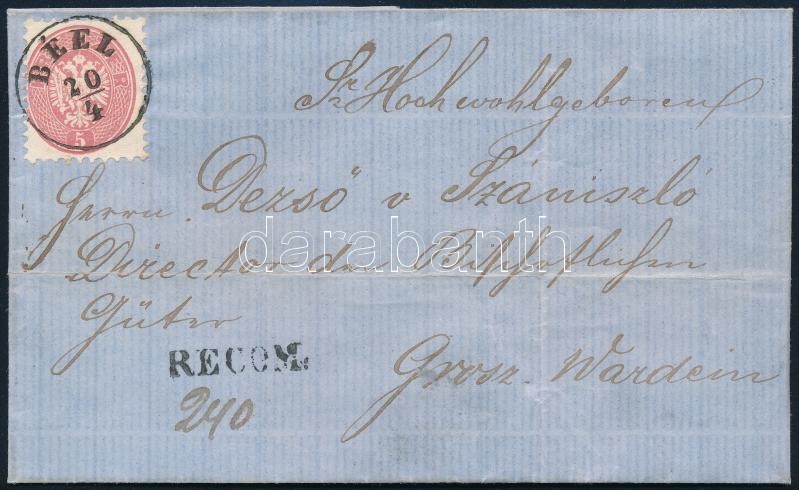 BÉEL
20
4
5
Sr Hochwohlgeboren
Herrn Dezső v Szániszló
Director der Bischöflichen
Güter
RECOM.
Grosz. Wardein
240
darabanth